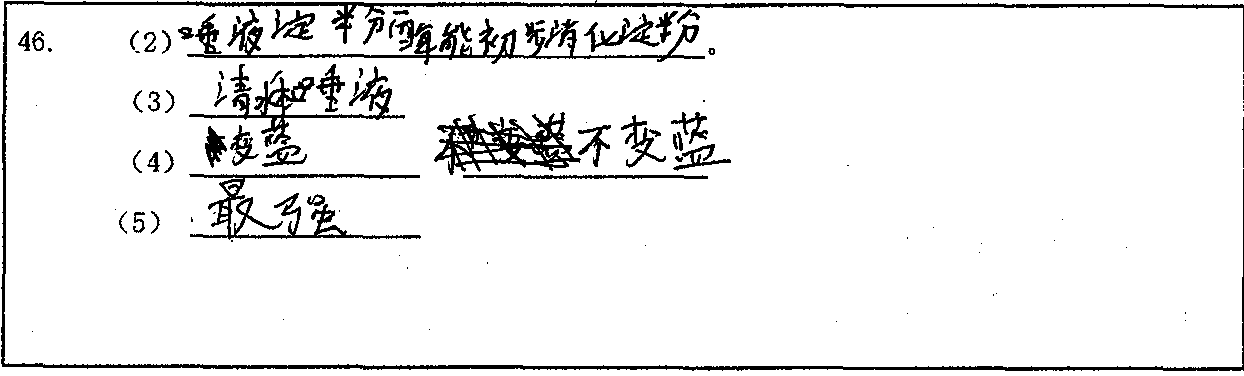 46. (2) 唾液淀粉酶能初步消化淀粉。
(3) 清水和唾液
(4) 变蓝 不变蓝
(5) 最强